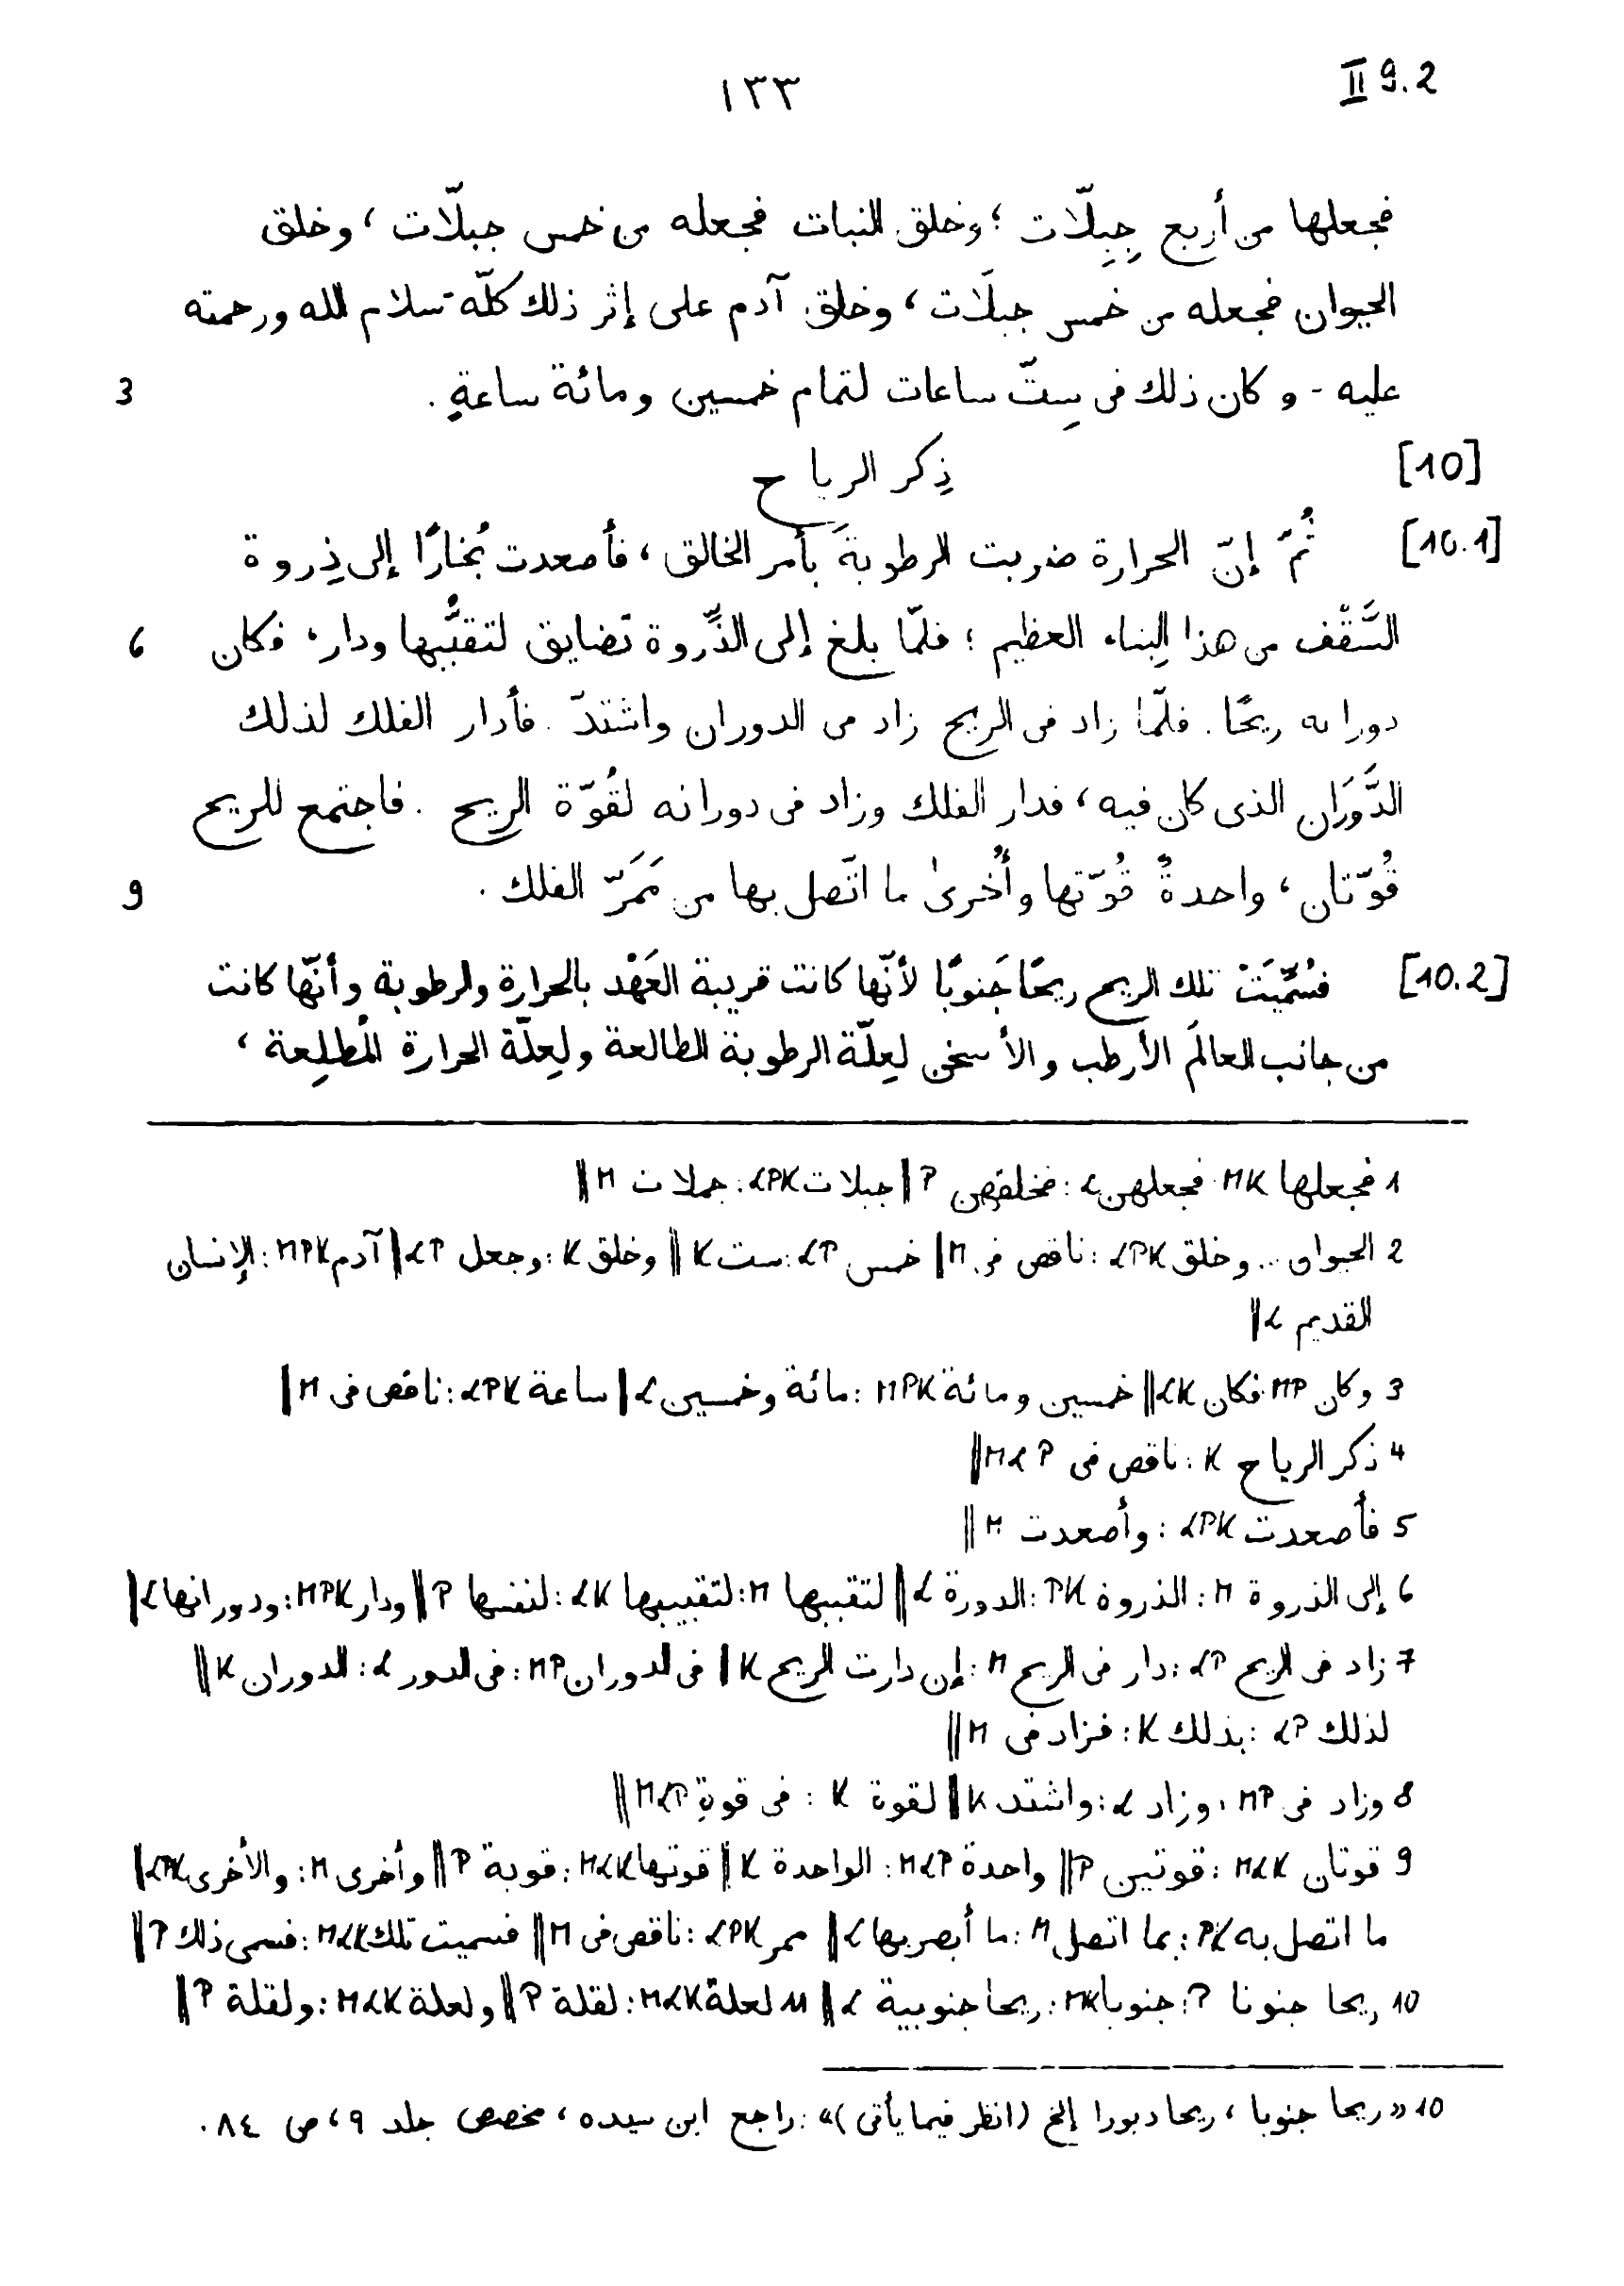 II 9.2
١٣٣
فجعلها من أربع جِبِلّات ؛ وخلق النبات فجعله من خمس جبلّات ، وخلق
الحيوان فجعله من خمس جبلّات ، وخلق آدم على إثر ذلك كلّه - سلام الله ورحمته
عليه - وكان ذلك فى سِتّ ساعات لتمام خمسين ومائة ساعةٍ . 3
[10] ذِكر الرياح
[10.1] ثُمّ إنّ الحرارة ضربت الرطوبةَ بأمر الخالق ، فأصعدت بُخارًا إلى ذِروة
السَّقْف من هذا البِناء العظيم ؛ فلمّا بلغ إلى الذِّروة تضايق لتقبُّبها ودار ، فكان 6
دورانه ريحًا . فلمّا زاد فى الريح زاد من الدوران واشتدّ . فأدار الفلك لذلك
الدَّوَران الذى كان فيه ، فدار الفلك وزاد فى دورانه لقُوّة الريح . فاجتمع للريح
قُوّتان ، واحدةٌ قُوّتها وأُخرىٰ ما اتّصل بها من مَمَرّ الفلك . 9
[10.2] فسُمِّيَتْ تلك الريح ريحًا جَنوبًا لأنّها كانت قريبة العَهْد بالحرارة والرطوبة وأنّها كانت
من جانب العالَم الأرطب والأسخن لعِلّة الرطوبة الطالعة ولعِلّة الحرارة المُطلِعة ،
1 فجعلها MK: فجعلهن L: فخلقهن P || جبلات LPK: جملات M ||
2 الحيوان ... وخلق LPK: ناقص فى M || خمس LP: ست K || وخلق K: وجعل LP || آدم MPK: الإنسان
القديم L ||
3 وكان MP: فكان LK || خمسين ومائة MPK: مائة وخمسين L || ساعة LPK: ناقص فى M ||
4 ذكر الرياح K: ناقص فى MLP ||
5 فأصعدت LPK: وأصعدت M ||
6 إلى الذروة M: الذروة PK: الدورة L || لتقببها M: لتقبيبها LK: لنفسها P || ودار MPK: ودورانها L ||
7 زاد فى الريح LP: دار فى الريح M: إن دارت الريح K || فى الدوران MP: فى الدور L: الدوران K ||
لذلك LP: بذلك K: فزاد فى M ||
8 وزاد فى MP: وزاد L: واشتد K || لقوة K: فى قوة MLP ||
9 قوتان MLK: قوتين P || واحدة MLP: الواحدة K || قوتها MLK: قوية P || وأخرى M: والأخرى LPK ||
ما اتصل به PK: بما اتصل M: ما أبصر بها L || ممر LPK: ناقص فى M || فسميت تلك MLK: فسمى ذلك P ||
10 ريحا جنوبا P: جنوبا MK: ريحا جنوبية L || 11 لعلة MLK: لقلة P || ولعلة MLK: ولقلة P ||
10 « ريحا جنوبا ، ريحا دبورا إلخ (انظر فيما يأتى) » : راجع ابن سيده ، مخصص جلد ٩ ، ص ٨٤ .